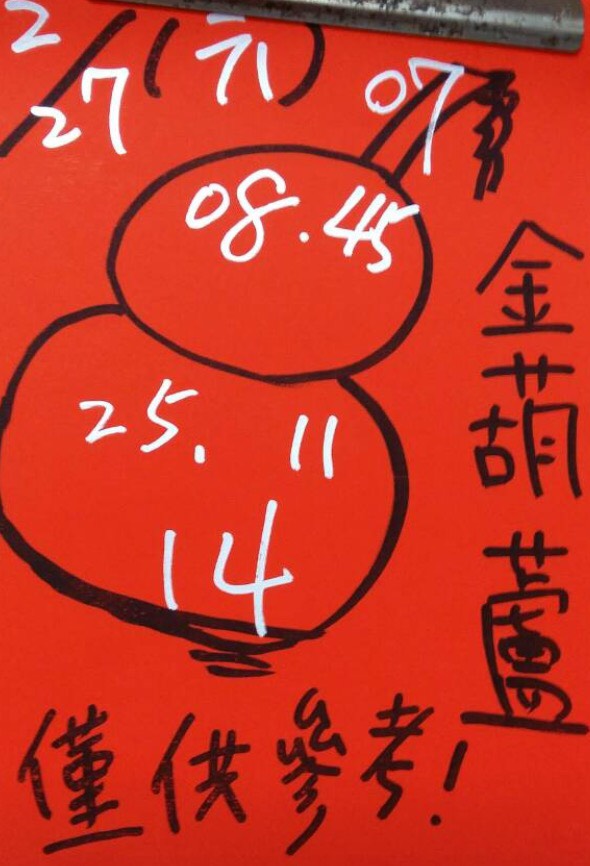 2/27(六)
07
08.45
25. 11
14
金葫蘆
僅供參考!